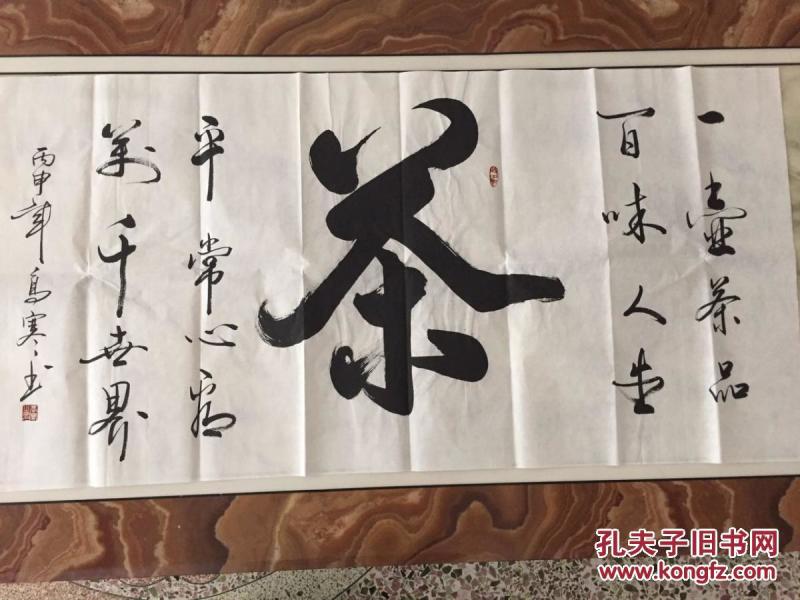 一壶茶品
百味人生
茶
平常心看
萬千世界
丙申年寒书
孔夫子旧书网
www.kongfz.com